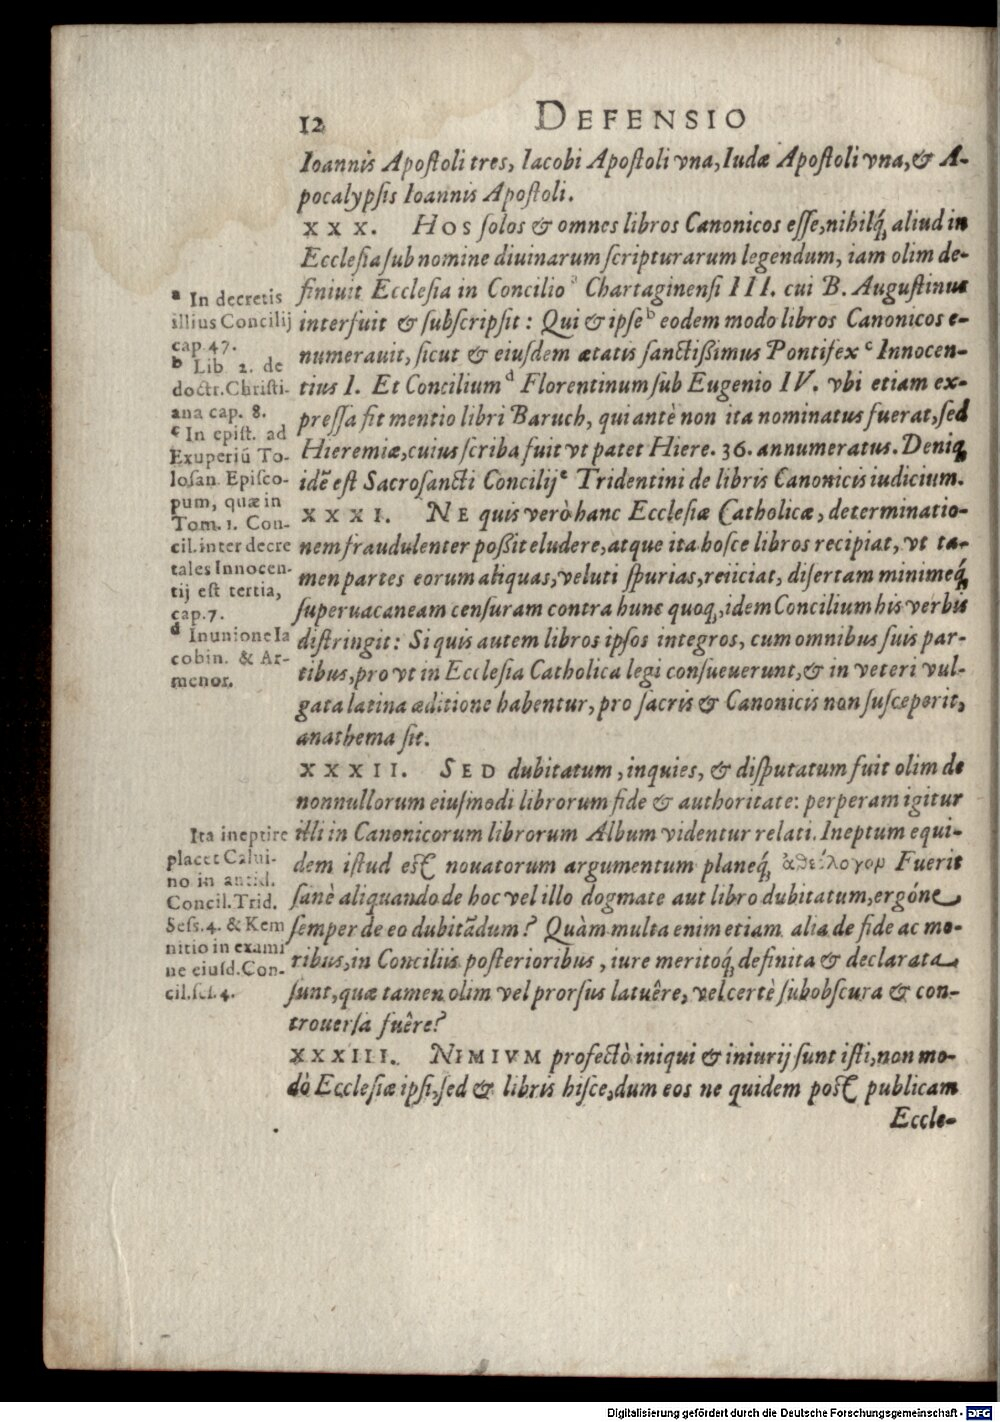 12 DEFENSIO
Ioannis Apoſtoli tres, Iacobi Apoſtoli vna, Iudæ Apoſtoli vna, & A-
pocalypſis Ioannis Apoſtoli.
XXX. HOS ſolos & omnes libros Canonicos eſſe, nihilq́; aliud in
Eccleſia ſub nomine diuinarum ſcripturarum legendum, iam olim de-
finiuit Eccleſia in Concilio ª Chartaginenſi III. cui B. Auguſtinus
interfuit & ſubſcripſit: Qui & ipſe ᵇ eodem modo libros Canonicos e-
numerauit, ſicut & eiuſdem ætatis ſanctißimus Pontifex ᶜ Innocen-
tius I. Et Concilium ᵈ Florentinum ſub Eugenio IV. vbi etiam ex-
preſſa fit mentio libri Baruch, qui antè non ita nominatus fuerat, ſed
Hieremiæ, cuius ſcriba fuit vt patet Hiere. 36. annumeratus. Deniq;
idē eſt Sacroſancti Concilij ᵉ Tridentini de libris Canonicis iudicium.
XXXI. NE quis verò hanc Eccleſiæ Catholicæ, determinatio-
nem fraudulenter poßit eludere, atque ita hoſce libros recipiat, vt ta-
men partes eorum aliquas, veluti ſpurias, reiiciat, diſertam minimeq́;
ſuperuacaneam cenſuram contra hunc quoq;, idem Concilium his verbis
diſtringit: Si quis autem libros ipſos integros, cum omnibus ſuis par-
tibus, pro vt in Eccleſia Catholica legi conſueuerunt, & in veteri vul-
gata latina æditione habentur, pro ſacris & Canonicis non ſuſceperit,
anathema ſit.
XXXII. SED dubitatum, inquies, & diſputatum fuit olim de
nonnullorum eiuſmodi librorum fide & authoritate: perperam igitur
illi in Canonicorum librorum Album videntur relati. Ineptum equi-
dem iſtud eſt nouatorum argumentum planeq́; ἀθεόλογον Fuerit
ſanè aliquando de hoc vel illo dogmate aut libro dubitatum, ergóne
ſemper de eo dubitādum? Quàm multa enim etiam alia de fide ac mo-
ribus, in Conciliis poſterioribus, iure meritoq́; definita & declarata
ſunt, quæ tamen olim vel prorſus latuêre, vel certè ſubobſcura & con-
trouerſa fuêre?
XXXIII. NIMIVM profectò iniqui & iniurij ſunt iſti, non mo-
dò Eccleſiæ ipſi, ſed & libris hiſce, dum eos ne quidem poſt publicam
Eccle-
ª In decretis
illius Concilij
cap. 47.
ᵇ Lib. 2. de
doctr. Chriſti-
ana cap. 8.
ᶜ In epiſt. ad
Exuperiū To-
loſan. Epiſco-
pum, quæ in
Tom. 1. Con-
cil. inter decre
tales Innocen-
tij eſt tertia,
cap. 7.
ᵈ In unione Ia
cobin. & Ar-
menor.
Ita ineptire
placet Calui-
no in antid.
Concil. Trid.
Seſs. 4. & Kem
nitio in exami
ne eiuſd. Con-
cil. ſeſ. 4.
Digitalisierung gefördert durch die Deutsche Forschungsgemeinschaft - DFG